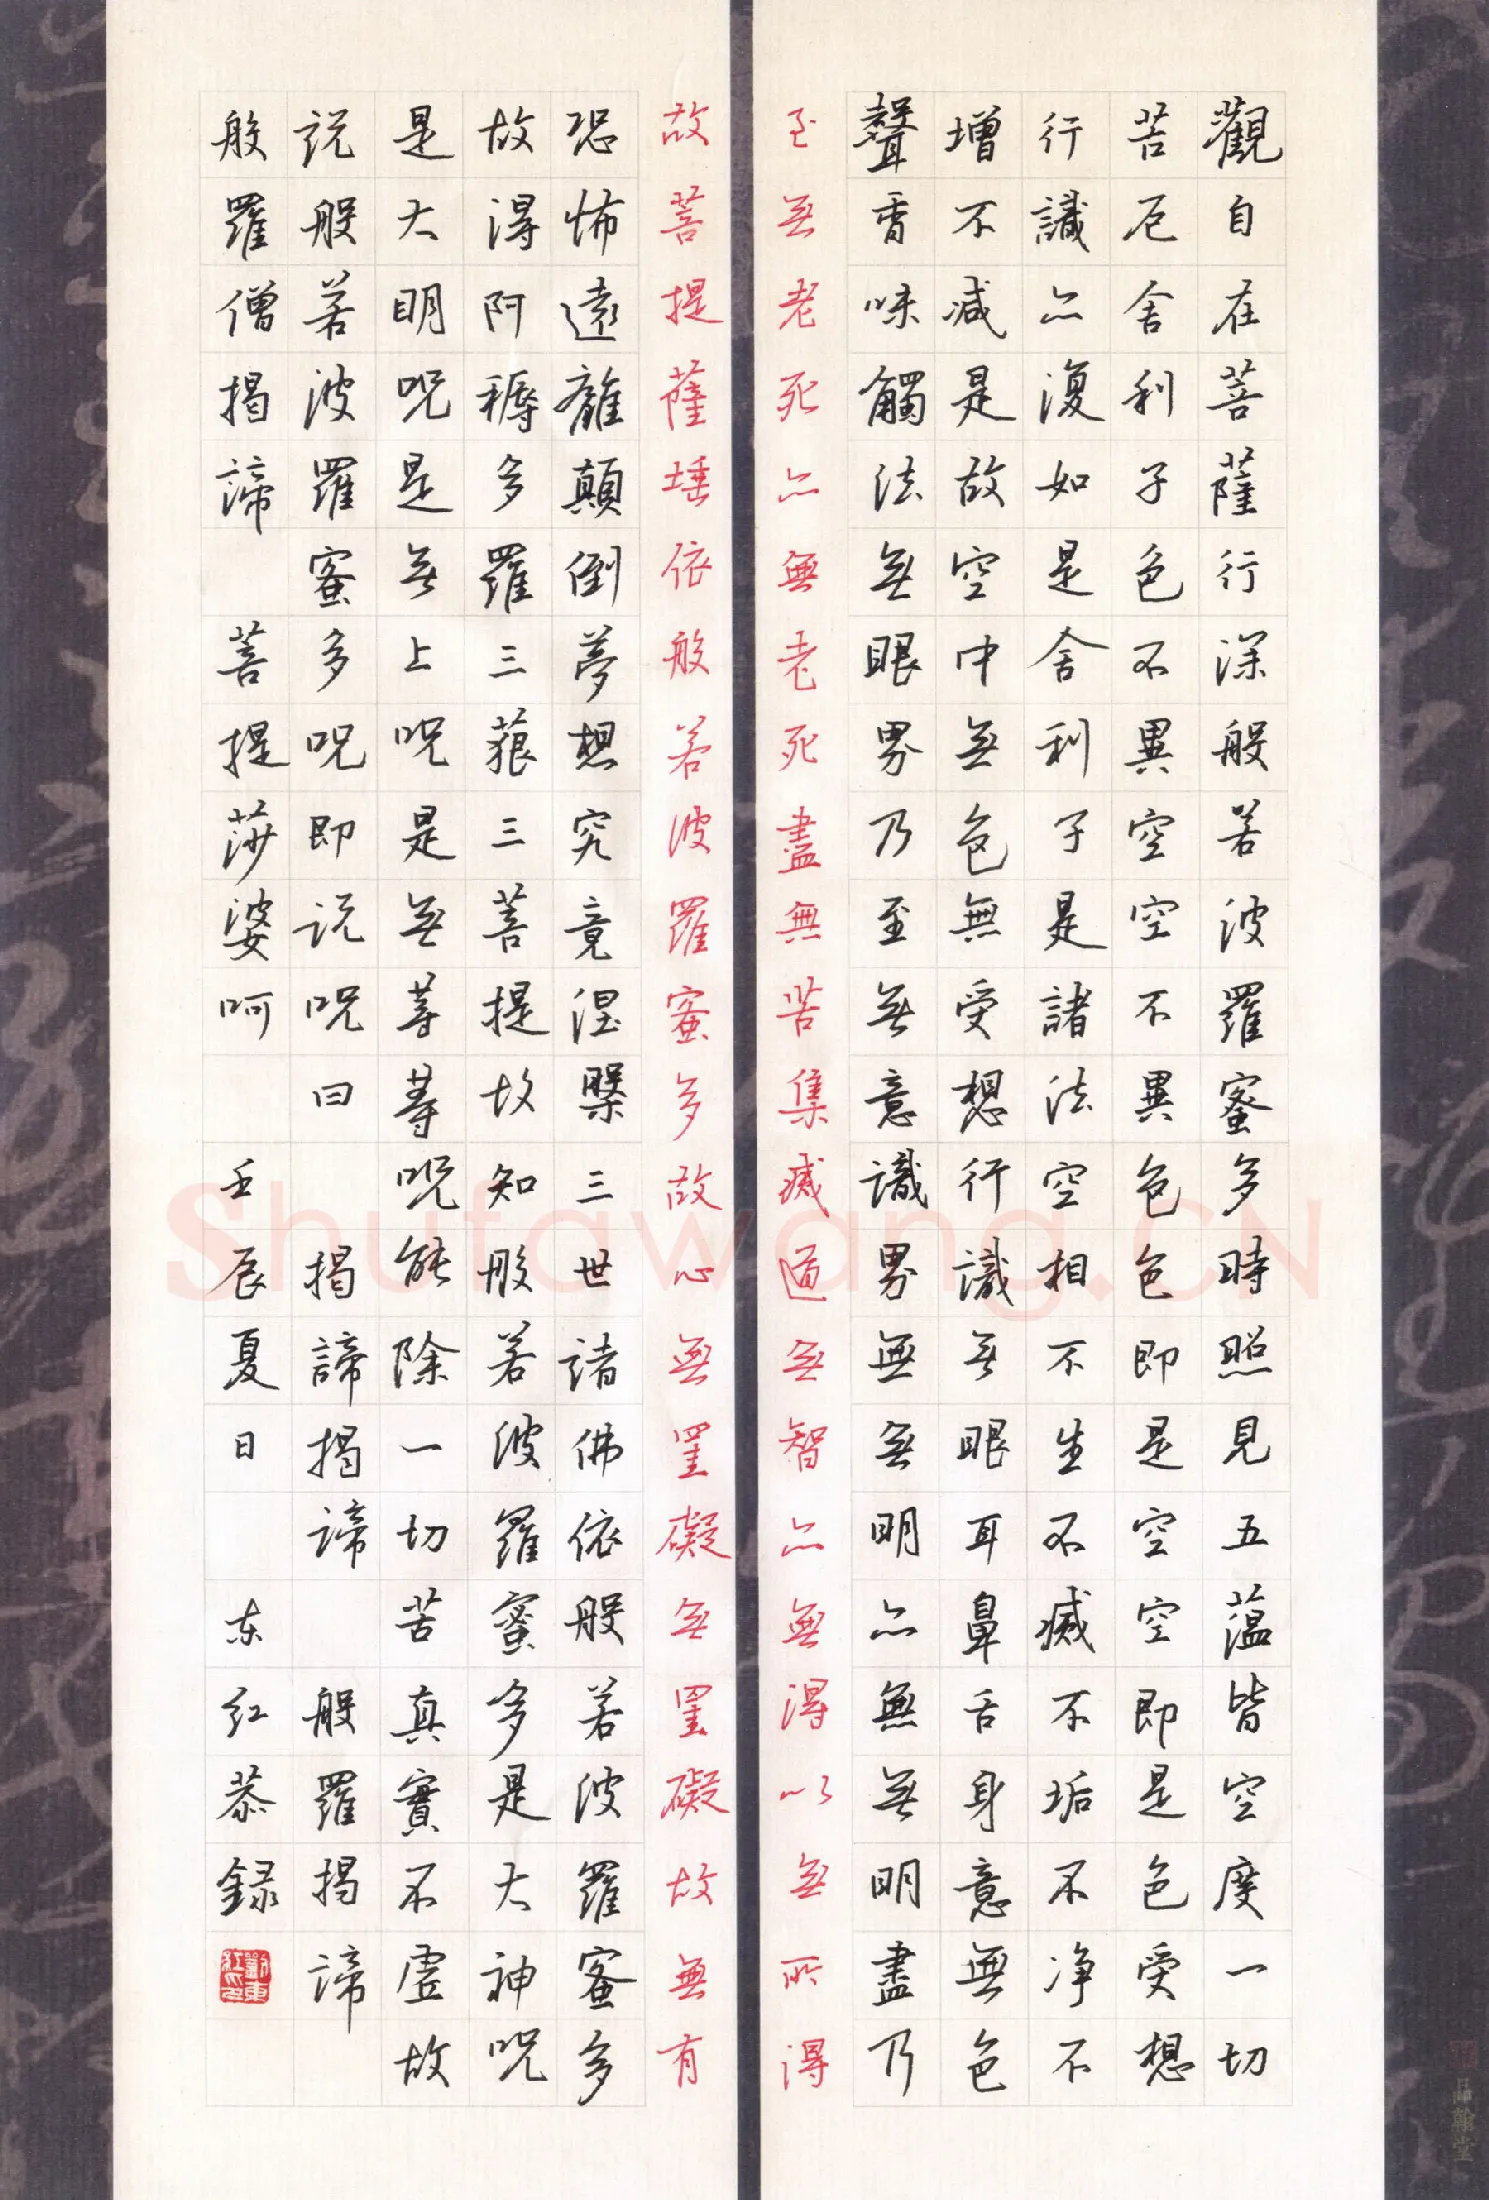 觀自在菩薩行深般若波羅蜜多時照見五蘊皆空度一切
苦厄舍利子色不異空空不異色色即是空空即是色受想
行識亦復如是舍利子是諸法空相不生不滅不垢不净不
增不減是故空中無色無受想行識無眼耳鼻舌身意無色
聲香味觸法無眼界乃至無意識界無無明亦無無明盡乃
至無老死亦無老死盡無苦集滅道無智亦無得以無所得
故菩提薩埵依般若波羅蜜多故心無罣礙無罣礙故無有
恐怖遠離顛倒夢想究竟涅槃三世諸佛依般若波羅蜜多
故得阿耨多羅三藐三菩提故知般若波羅蜜多是大神呪
是大明呪是無上呪是無等等呪能除一切苦真實不虛故
説般若波羅蜜多呪即説呪曰 揭諦揭諦 般羅揭諦
般羅僧揭諦 菩提莎婆呵 壬辰夏日 东红恭録
劉東紅印
品翰堂
Shufawang.CN